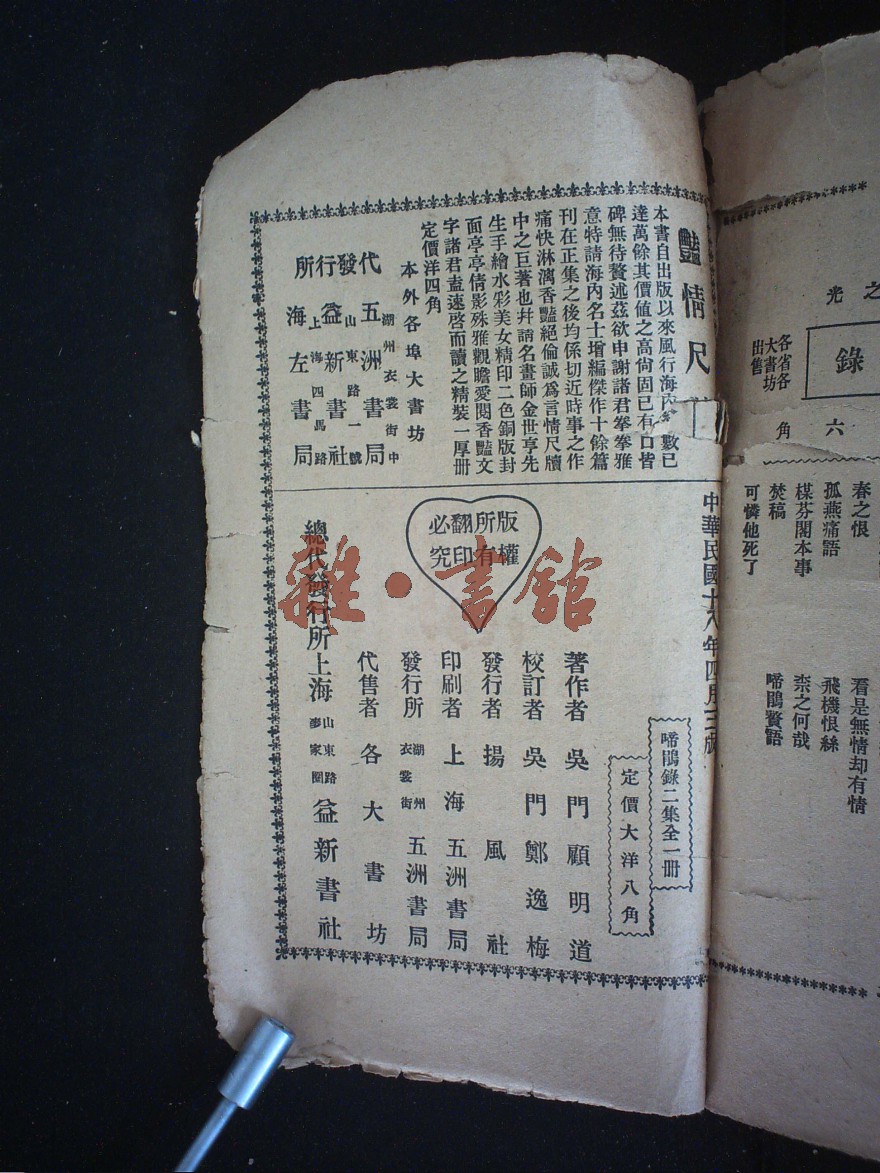 之光
錄
各省各大書坊出售
六角
春之恨
孤燕痛語
棋芬閣本事
焚稿
可憐他死了
看是無情却有情
飛機恨絲
柰之何哉
啼鵑贅語
豔情尺
本書自出版以來風行海內 數已
達萬餘其價値之高尙固已有口皆
碑無待贅述茲欲申謝諸君拳拳雅
意特請海內名士增編傑作十餘篇
刊在正集之後均係切近時事之作
痛快淋漓香豔絕倫誠爲言情尺牘
中之巨著也幷請名畫師金世亨先
生手繪水彩美女精印二色銅版封
面亭亭倩影殊雅觀瞻愛閱香豔文
字諸君盍速啓而讀之精裝一厚册
定價洋四角
本外各埠大書坊
代發行所
湖州衣裳街中
五洲書局
山東路一號
益新書社
上海四馬路
海左書局
中華民國十八年四月三版
啼鵑錄二集全一册
定價大洋八角
版權所有翻印必究
著作者 吳門顧明道
校訂者 吳門鄭逸梅
發行者 揚風社
印刷者 上海五洲書局
發行所 湖州衣裳街 五洲書局
代售者 各大書坊
總代發行所上海 山東路麥家圈 益新書社
雜·書館